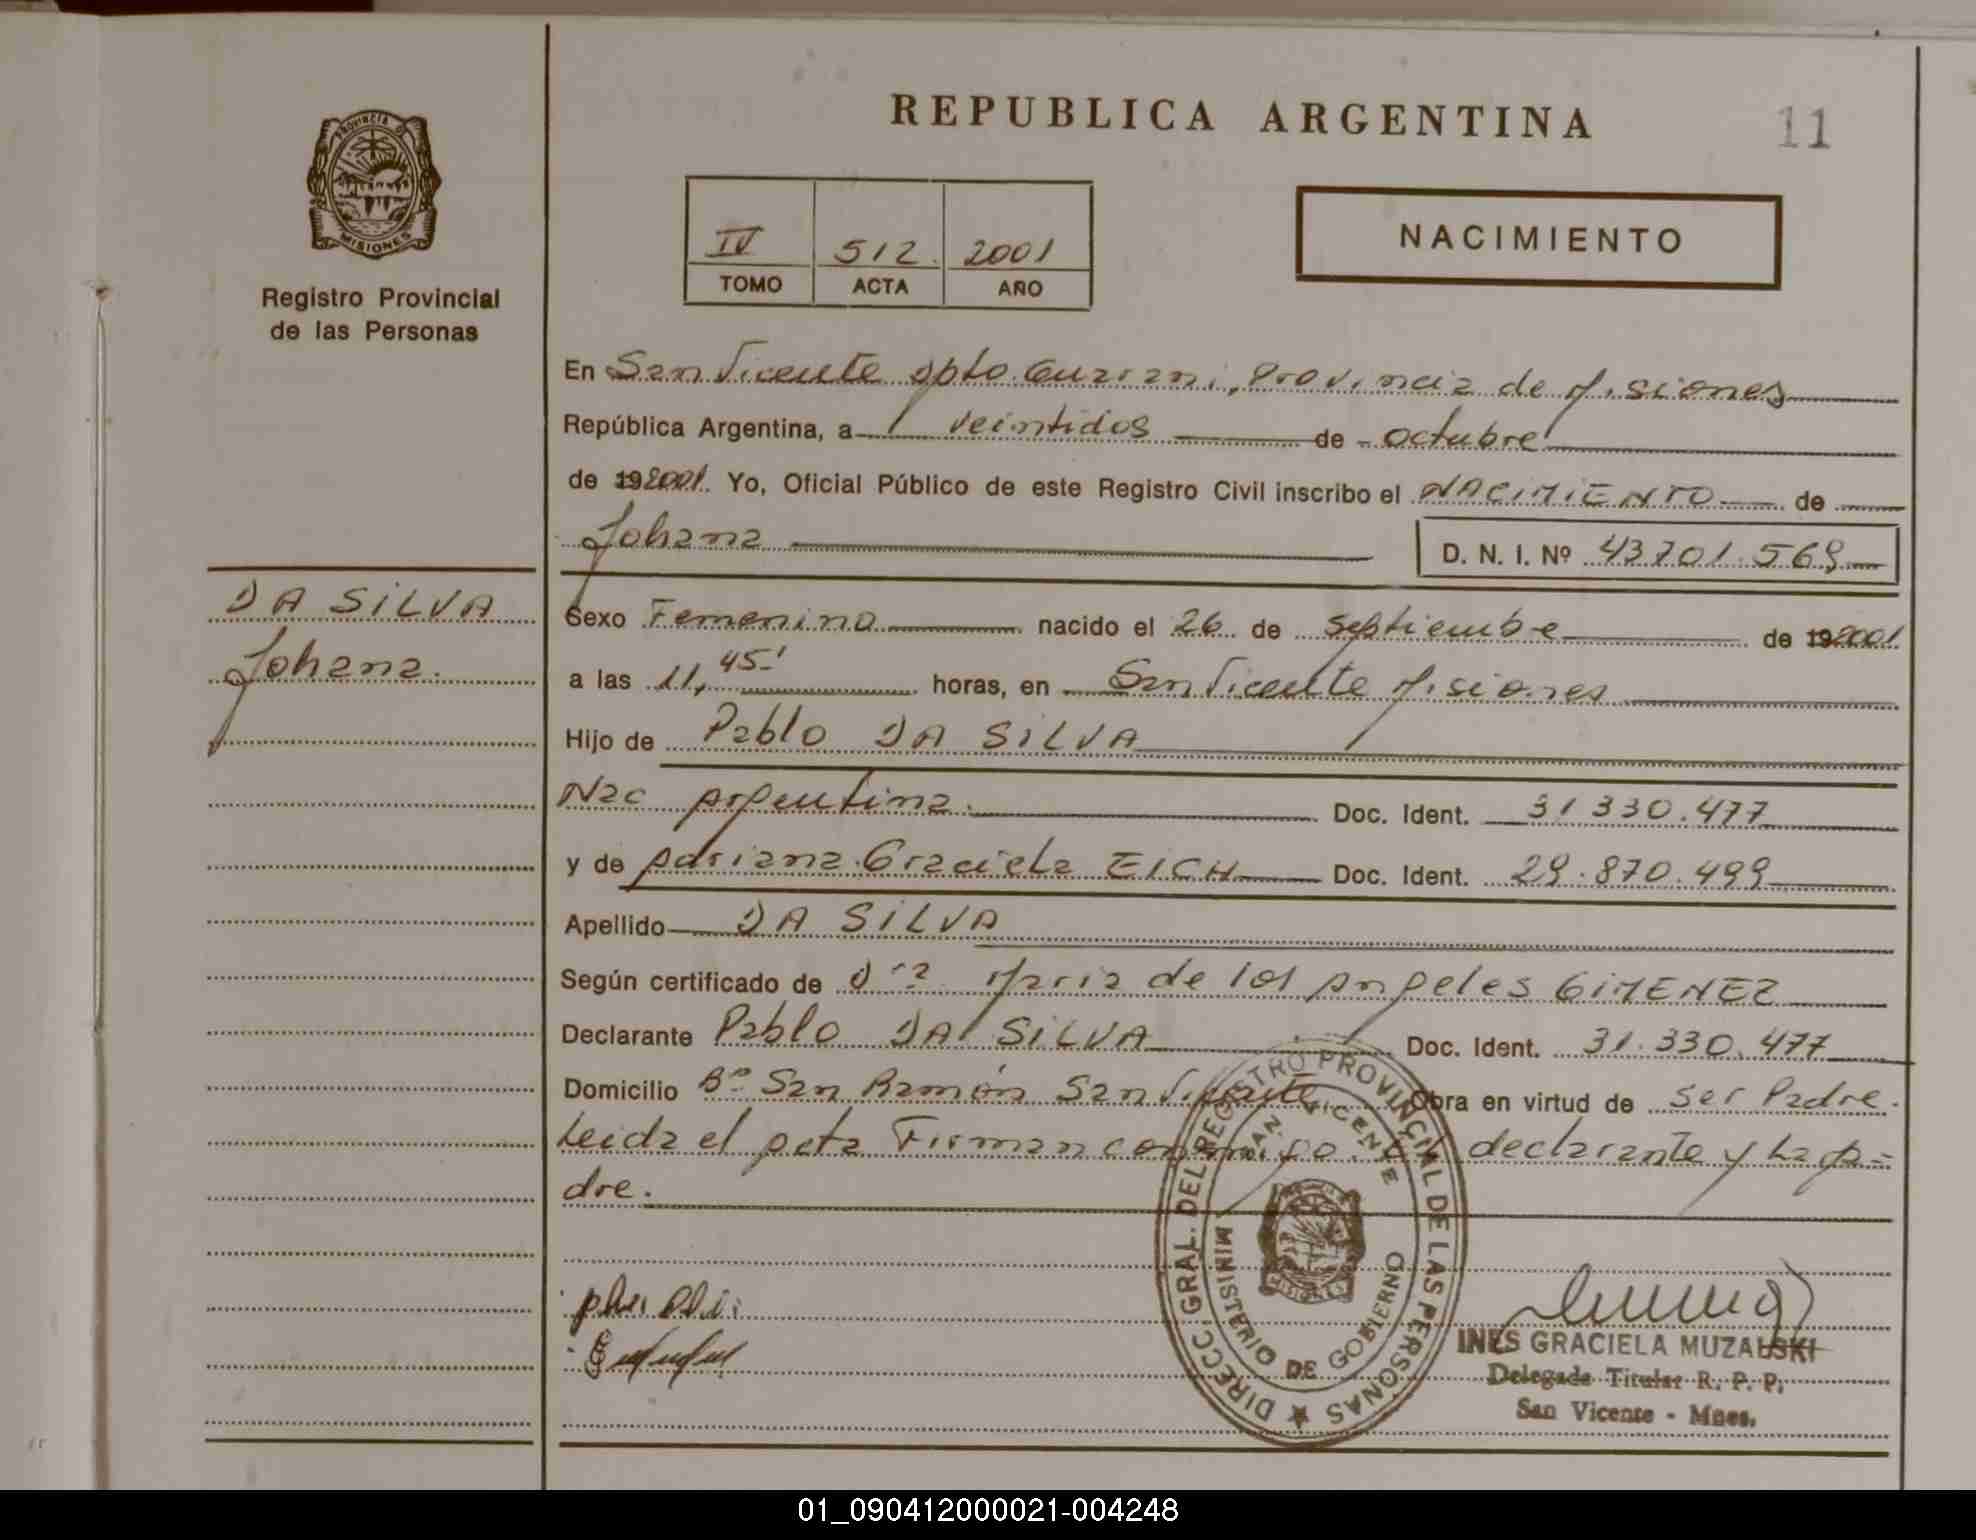 REPUBLICA ARGENTINA
11
PROVINCIA D
MISIONES
Registro Provincial
de las Personas
IV 512. 2001
TOMO ACTA AÑO
NACIMIENTO
En San Vicente Dpto. Guarani, Provincia de Misiones
República Argentina, a veintidos de octubre
de 19 2001. Yo, Oficial Público de este Registro Civil inscribo el NACIMIENTO de
Johana D. N. I. Nº 43701.569
DA SILVA
Johana.
Sexo Femenino nacido el 26 de septiembre de 19 2001
a las 11,45' horas, en San Vicente Misiones
Hijo de Pablo DA SILVA
Nac Argentina. Doc. Ident. 31 330.477
y de Mariana Graciela EICH Doc. Ident. 29.870.499
Apellido DA SILVA
Según certificado de Dra Maria de los Angeles GIMENEZ
Declarante Pablo DA SILVA Doc. Ident. 31.330.477
Domicilio Bº San Ramón San Vicente Obra en virtud de ser Padre.
Leida el Acta Firman conmigo el declarante y La Ma=
dre.
DIRECC. GRAL. DEL REGISTRO PROVINCIAL DE LAS PERSONAS
SAN VICENTE
MINISTERIO DE GOBIERNO
INES GRACIELA MUZALSKI
Delegada Titular R. P. P.
San Vicente - Mnes.
01_090412000021-004248